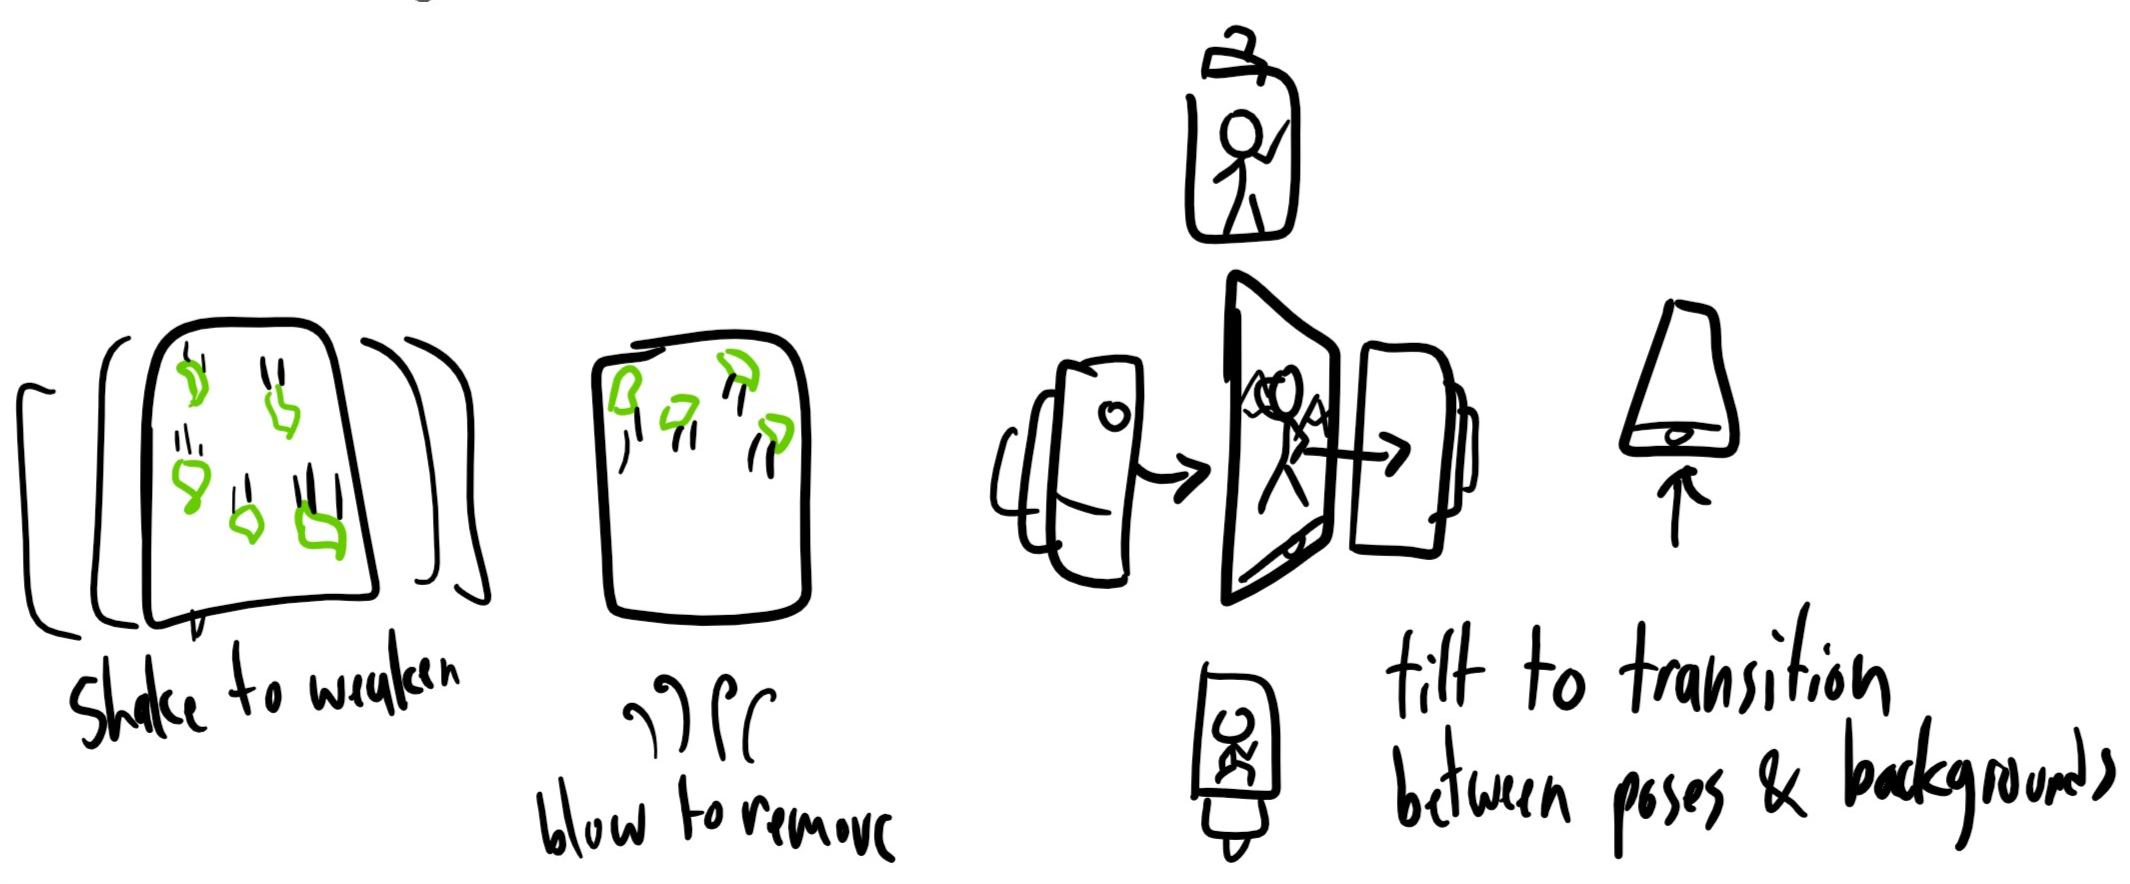 shake to weaken
blow to remove
tilt to transition
between poses & backgrounds